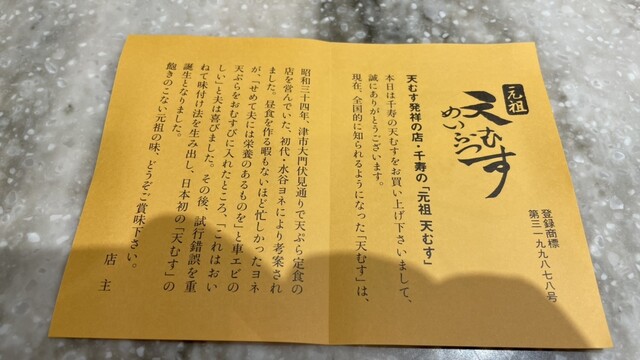 元祖
天むす
めいぶつ
登録商標
第三一九九八七八号
天むす発祥の店・千寿の「元祖 天むす」
本日は千寿の天むすをお買い上げ下さいまして、
誠にありがとうございます。
現在、全国的に知られるようになった「天むす」は、
昭和三十四年、津市大門伏見通りで天ぷら定食の
店を営んでいた、初代・水谷ヨネにより考案され
ました。昼食を作る暇もないほど忙しかったヨネ
が、「せめて夫には栄養のあるものを」と車エビの
天ぷらをおむすびに入れたところ、「これはおい
しい」と夫は喜びました。その後、試行錯誤を重
ねて味付け法を生み出し、日本初の「天むす」の
誕生となりました。
飽きのこない元祖の味、どうぞご賞味下さい。
店 主